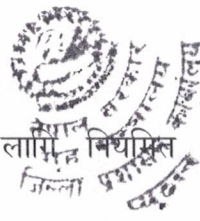 नेपाल सरकार
गृह मन्त्रालय
जिल्ला प्रशासन कार्यालय
लागि नियमित